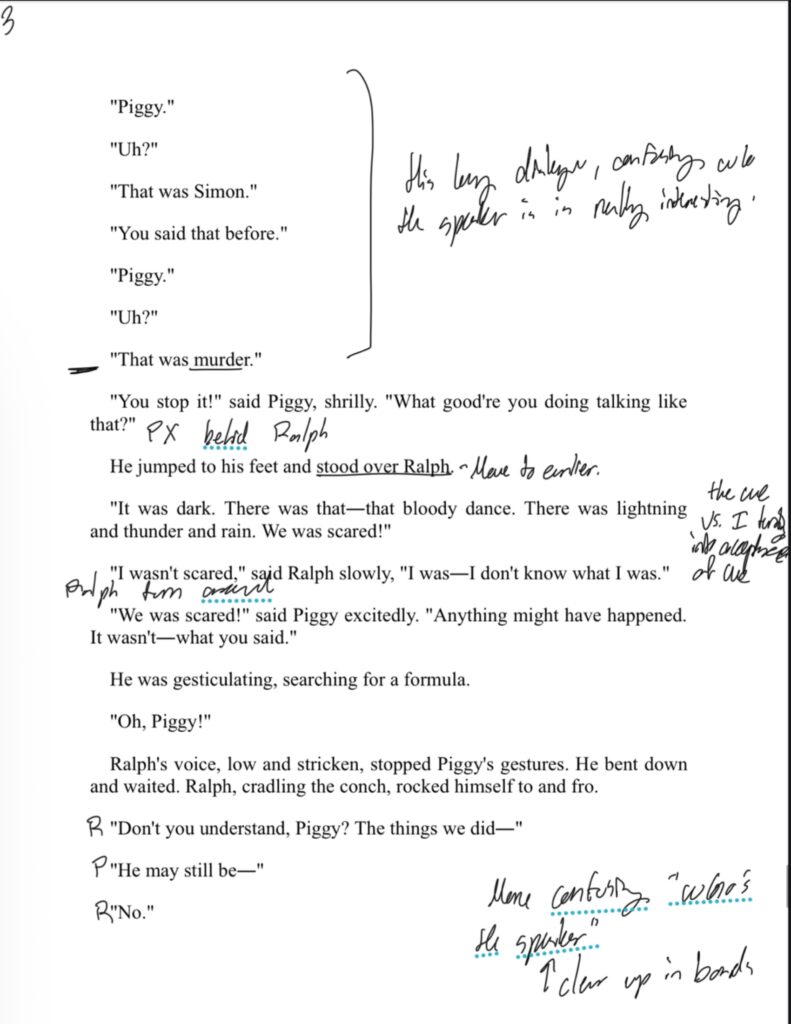 3
"Piggy."
"Uh?"
"That was Simon."
"You said that before."
"Piggy."
"Uh?"
"That was murder."
this long dialogue, confusing who
the speaker is is really interesting.
"You stop it!" said Piggy, shrilly. "What good're you doing talking like
that?" PX behind Ralph
He jumped to his feet and stood over Ralph. - Move to earlier.
"It was dark. There was that—that bloody dance. There was lightning
and thunder and rain. We was scared!"
the we
vs. I
into acceptance
of we
"I wasn't scared," said Ralph slowly, "I was—I don't know what I was."
Ralph turn around
"We was scared!" said Piggy excitedly. "Anything might have happened.
It wasn't—what you said."
He was gesticulating, searching for a formula.
"Oh, Piggy!"
Ralph's voice, low and stricken, stopped Piggy's gestures. He bent down
and waited. Ralph, cradling the conch, rocked himself to and fro.
R "Don't you understand, Piggy? The things we did—"
P "He may still be—"
R "No."
More confusing "who's
the speaker"
↑ clear up in boards